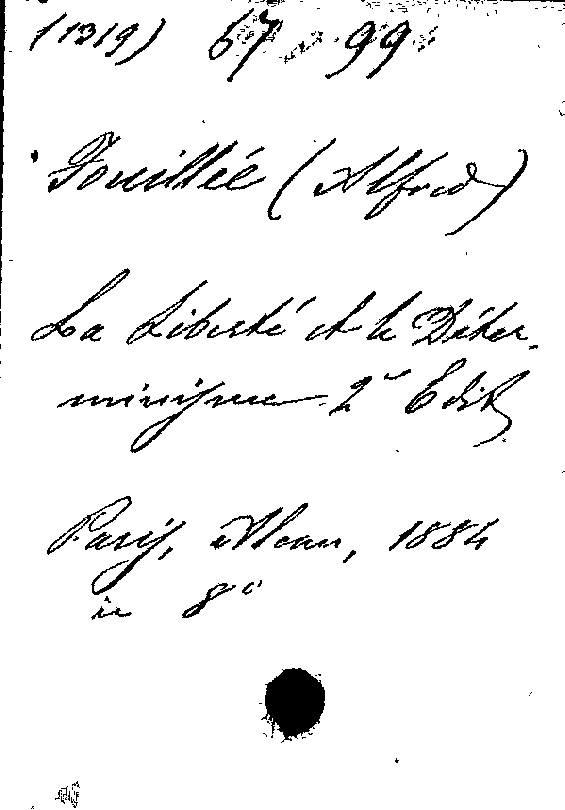 (1319) 67 99
Fouillée (Alfred)
La Liberté et le Déter-
minisme 2e Edit
Paris, Alcan, 1884
in 8°